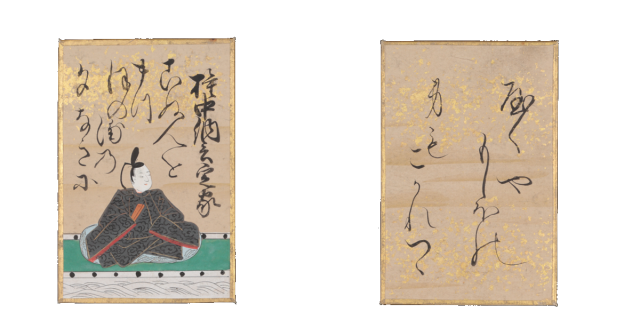 権中納言定家
こぬ人を
まつ
ほの浦乃
夕なきに
やくや
もしほの
身もこかれつゝ